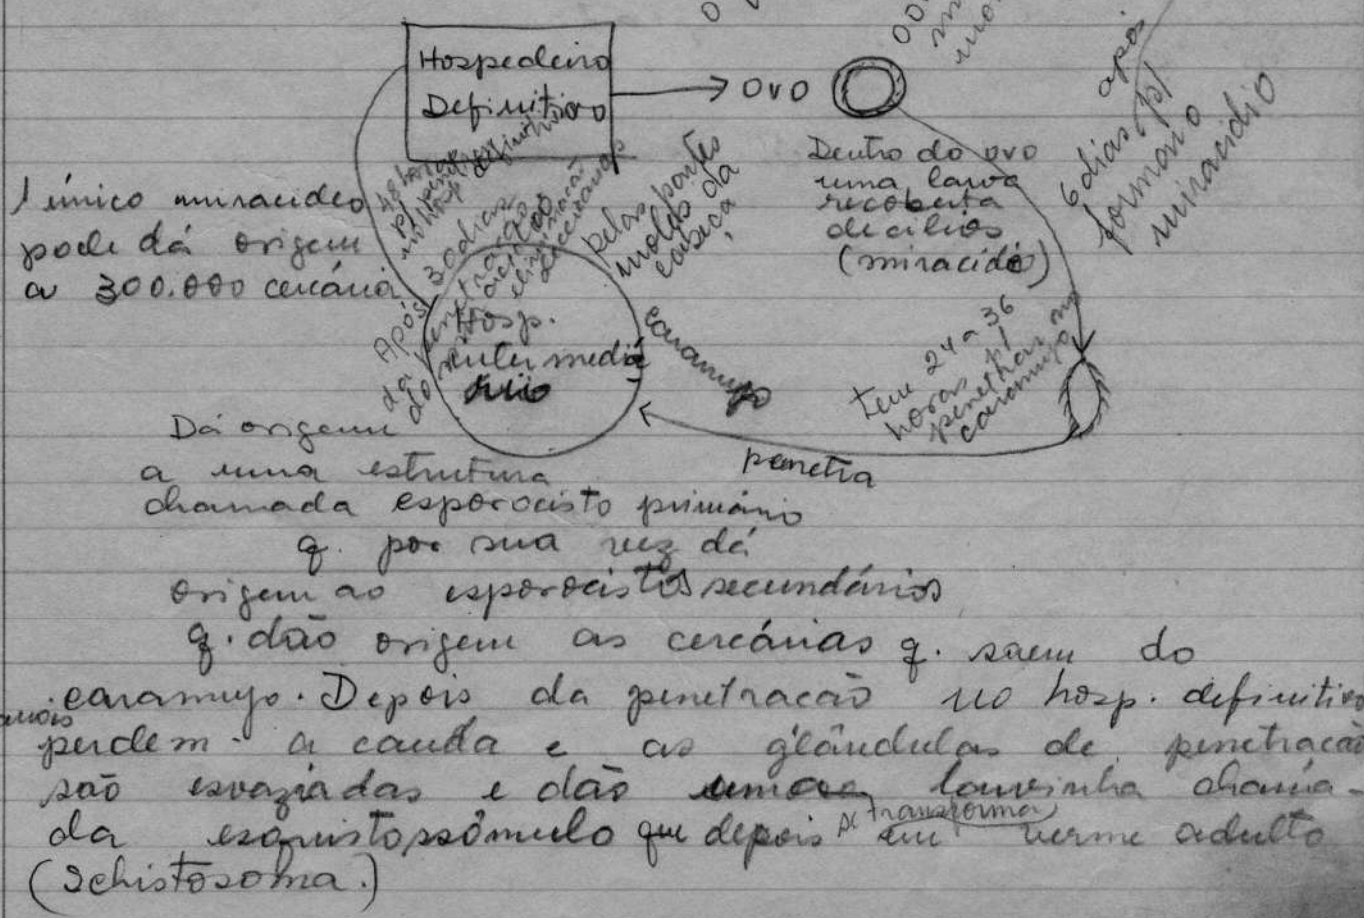 Hospedeiro
Definitivo
ovo
após
6 dias p/
formar o
miracidio
Dentro do ovo
uma larva
recoberta
de cílios
(miracidio)
1 único miracideo
pode dá origem
a 300.000 cercária
48 horas
p/
hosp. definitivo
Após 30 dias
da penetração
do
eliminação
de cercarias
pelas partes
moles da
cabeça
Hosp.
intermediá
rio
caramujo
tem 24 a 36
horas p/
penetrar no
caramujo
penetra
Dá origem
a uma estrutura
chamada esporocisto primário
q. por sua vez dá
origem ao esporocistos secundários
q. dão origem as cercárias q. saem do
caramujo. Depois da penetracão no hosp. definitivo
perdem a cauda e as glândulas de penetracão
são esvaziadas e dão uma larvinha chama-
da esquistossômulo que depois se transforma em verme adulto
(Schistosoma.)